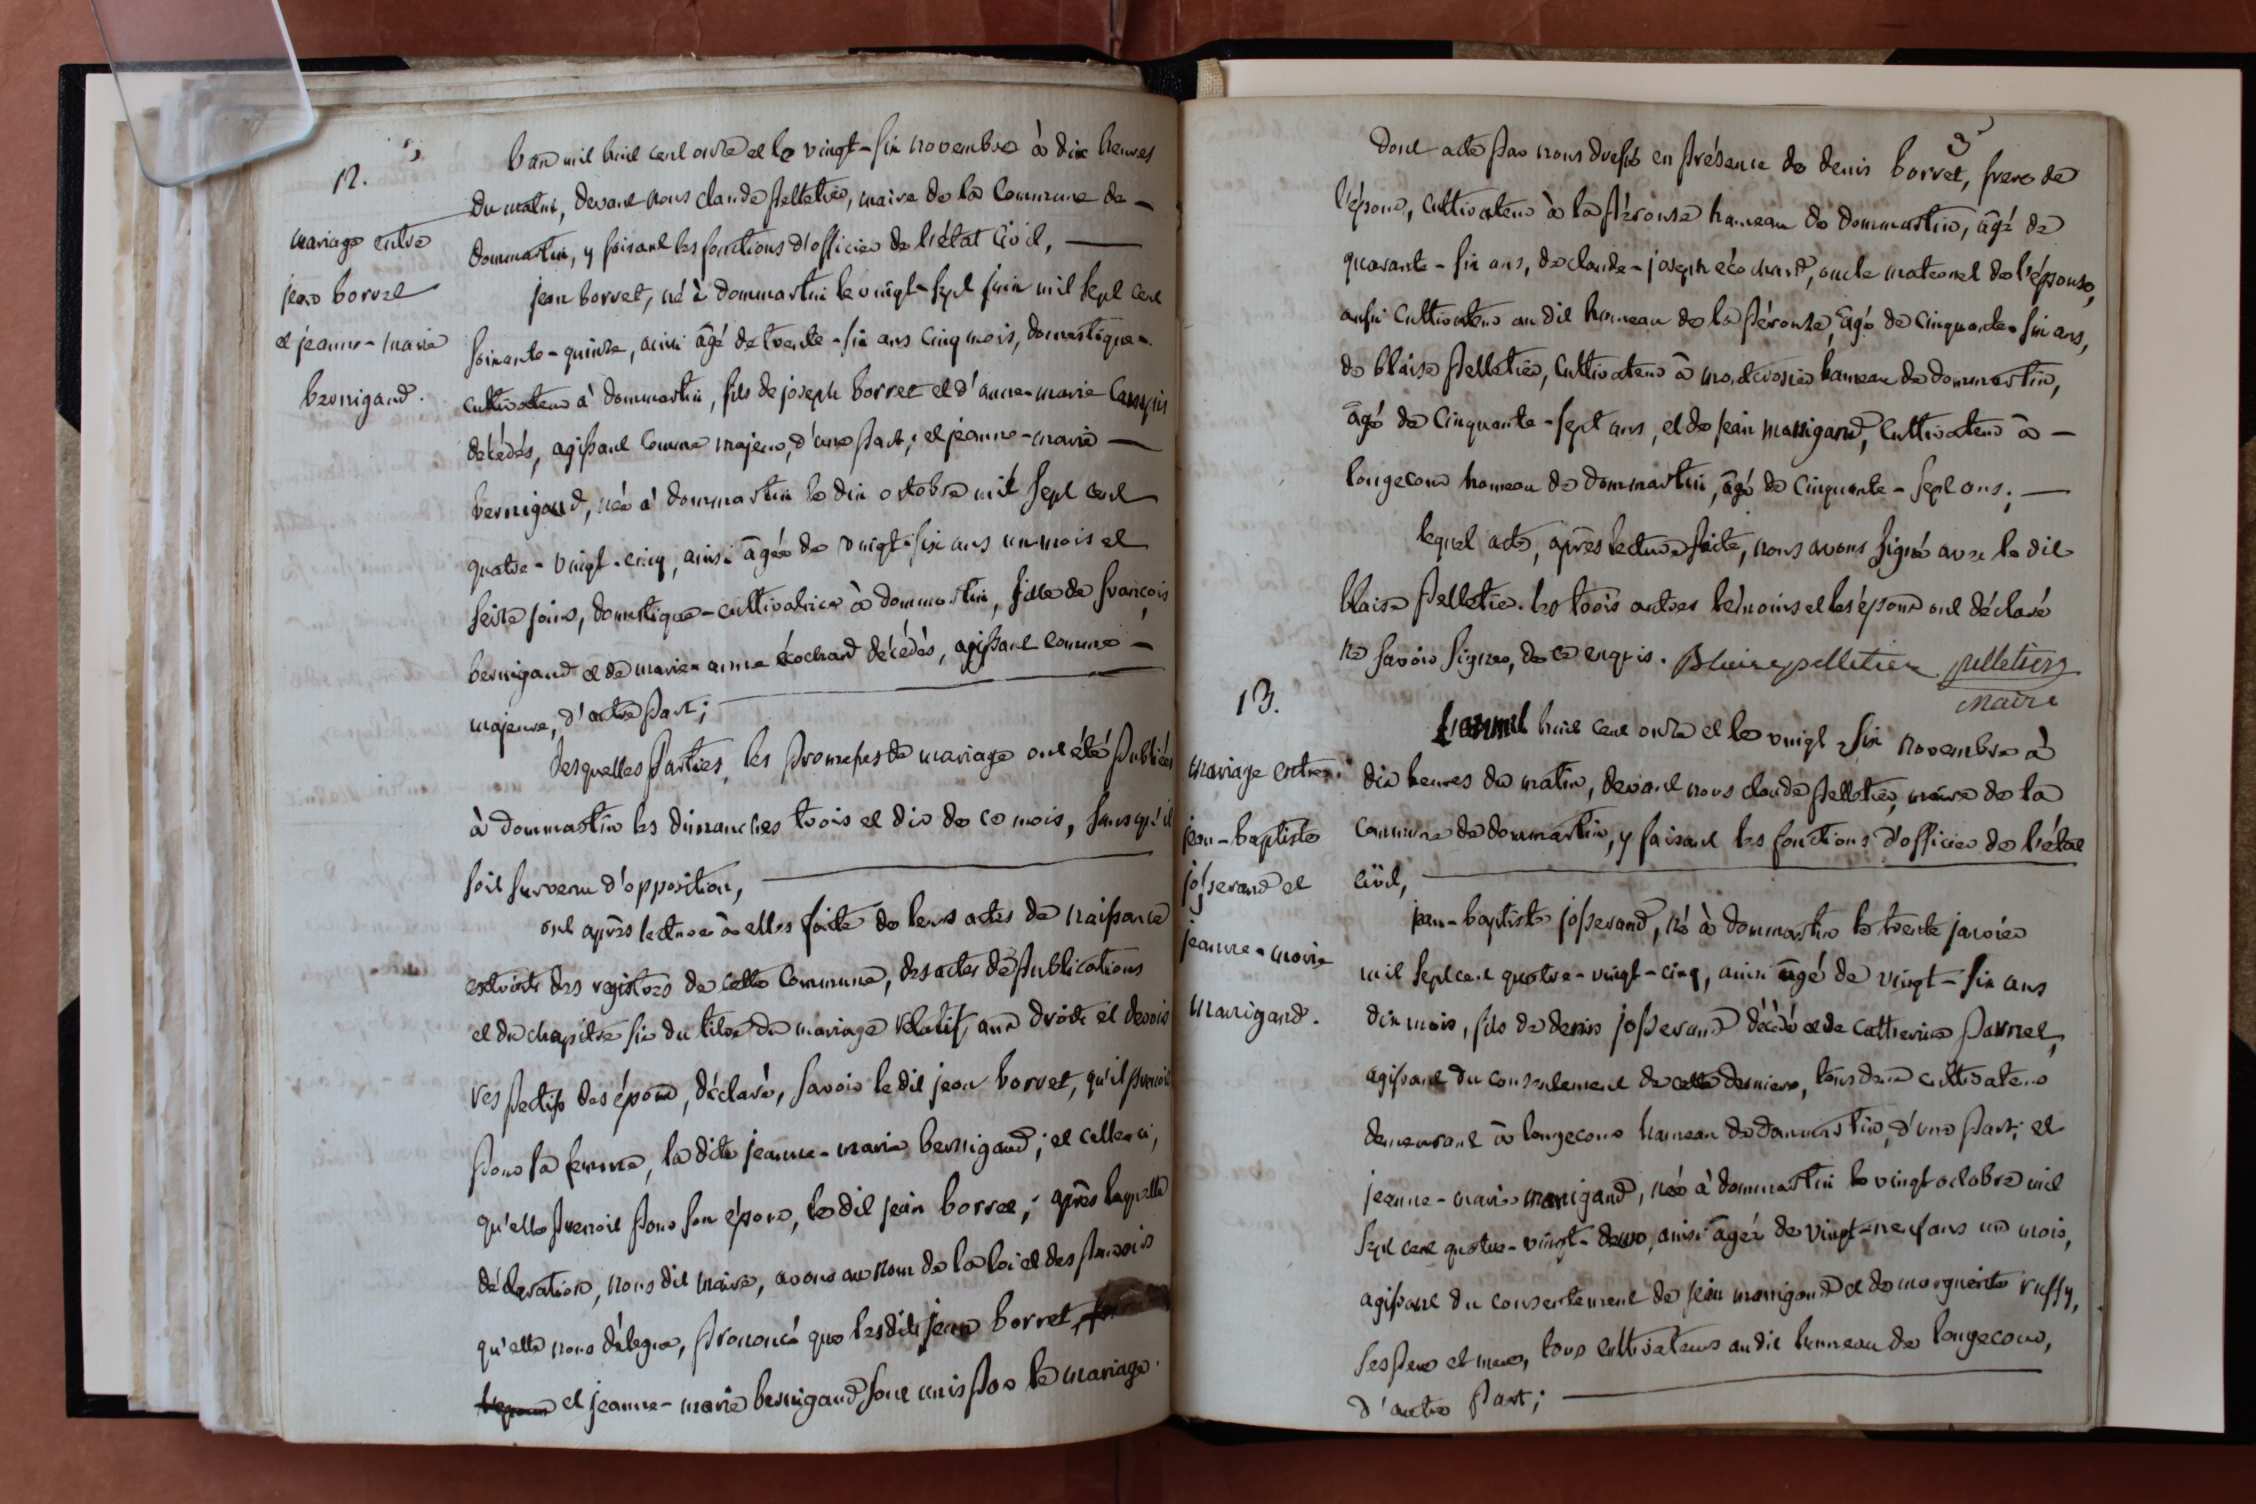 12.
mariage entre
jean borret
et jeanne-marie
bernigaud.
L'an mil huit cent onze et le vingt-six novembre à dix heures
du matin, devant nous claude pelletier, maire de la Commune de
dommartin, y faisant les fonctions d'officier de l'état Civil,
jean borret, né à dommartin le vingt-sept juin mil sept cent
soixante-quinze, ainsi âgé de trente-six ans cinq mois, domestique-
cultivateur à dommartin, fils de joseph borret et d'anne-marie
décédés, agissant comme majeur, d'une part; et jeanne-marie
bernigaud, née à dommartin le dix octobre mil sept cent
quatre-vingt-cinq, ainsi âgée de vingt-six ans un mois et
seize jours, domestique-cultivatrice à dommartin, fille de françois
bernigaud et de marie-anne écochard décédés, agissant comme
majeure, d'autre part;
desquelles parties, les promesses de mariage ont été publiées
à dommartin les dimanches trois et dix de ce mois, sans qu'il
soit survenu d'opposition,
ont après lecture à elles faite de leurs actes de naissance
extraits des registres de cette Commune, des actes de publications
et du chapitre six du titre du mariage relatif aux droits et devoirs
respectifs des époux, déclaré, savoir le dit jean borret, qu'il prenoit
pour sa femme, la dite jeanne-marie bernigaud; et celle-ci,
qu'elle prenoit pour son époux, le dit jean borret; après laquelle
déclaration, nous dit maire, avons au nom de la loi et des pouvoirs
qu'elle nous délegue, prononcé que lesdits jean borret
et jeanne-marie bernigaud sont unis par le mariage.
3
Dont acte par nous dressé en présence de denis borret, frere de
l'époux, cultivateur à la pérouse hameau de dommartin, âgé de
quarante-six ans, de claude-joseph écochard, oncle maternel de l'épouse,
aussi cultivateur au dit hameau de la pérouse, âgé de cinquante-six ans,
de blaise pelletier, cultivateur à hameau de dommartin,
âgé de cinquante-sept ans, et de jean manigand, cultivateur à
longecour hameau de dommartin, âgé de cinquante-sept ans;
lequel acte, après lecture faite, nous avons signé avec le dit
blaise pelletier. les trois autres témoins et les époux ont déclaré
ne savoir signer, de ce enquis. Blaise pelletier pelletier
maire
13.
mariage entre
jean-baptiste
josserand et
jeanne-marie
manigand.
L'an mil huit cent onze et le vingt-six novembre à
dix heures du matin, devant nous claude pelletier, maire de la
commune de dommartin, y faisant les fonctions d'officier de l'état
civil,
jean-baptiste josserand, né à dommartin le trente janvier
mil sept cent quatre-vingt-cinq, ainsi âgé de vingt-six ans
dix mois, fils de denis josserand décédé et de catherine parnet,
agissant du consentement de cette derniere, tous deux cultivateurs
demeurant à longecour hameau de dommartin, d'une part; et
jeanne-marie manigand, née à dommartin le vingt octobre mil
sept cent quatre-vingt-deux, ainsi âgée de vingt-neuf ans un mois,
agissant du consentement de jean manigand et de marguerite ruffy,
ses pere et mere, tous cultivateurs au dit hameau de longecour,
d'autre part;